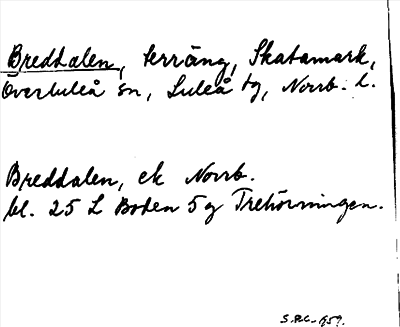 Breddalen, terräng, Skatamark,
Överluleå sn, Luleå tg, Norrb. l.
Breddalen, ek Norrb.
bl. 25 L Boden 5g Trehörningen.